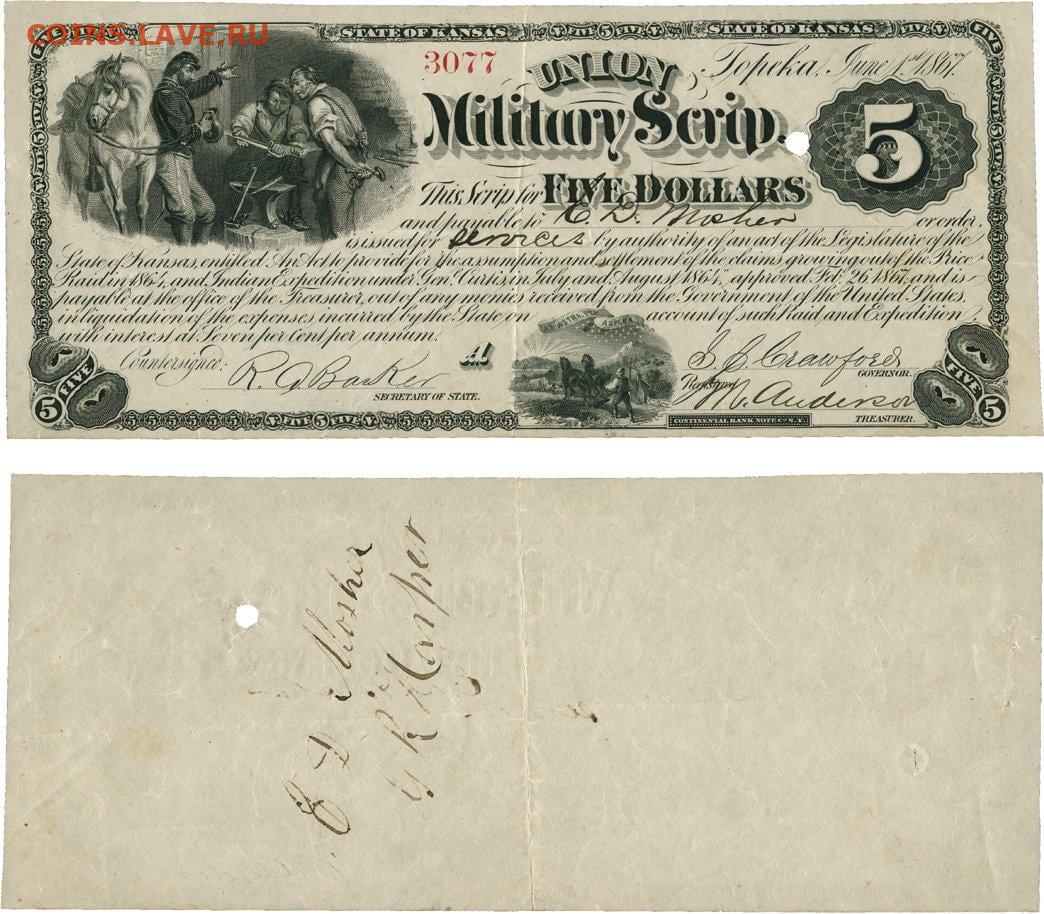 COINS.LAVE.RU
STATE OF KANSAS STATE OF KANSAS
3077
UNION
Topeka, June 1st 1867.
Military Scrip.
5
This Scrip for FIVE DOLLARS
and payable to C. D. Mosher or order,
is issued for services by authority of an act of the Legislature of the
State of Kansas, entitled An Act to provide for the assumption and settlement of the claims growing out of the Price
Raid in 1864, and Indian Expedition under Gen. Curtis, in July and August 1864, approved Feb. 26, 1867, and is
payable at the office of the Treasurer, out of any monies received from the Government of the United States,
in liquidation of the expenses incurred by the State on account of such Raid and Expedition,
with interest at Seven per cent per annum.
AD ASTRA PER ASPERA
Countersigned:
A
R. A. Barker
SECRETARY OF STATE.
S. J. Crawford
GOVERNOR.
M. Anderson
TREASURER.
FIVE
FIVE
5
5
CONTINENTAL BANK NOTE CO. N.Y.
C D Mosher
G R Harper